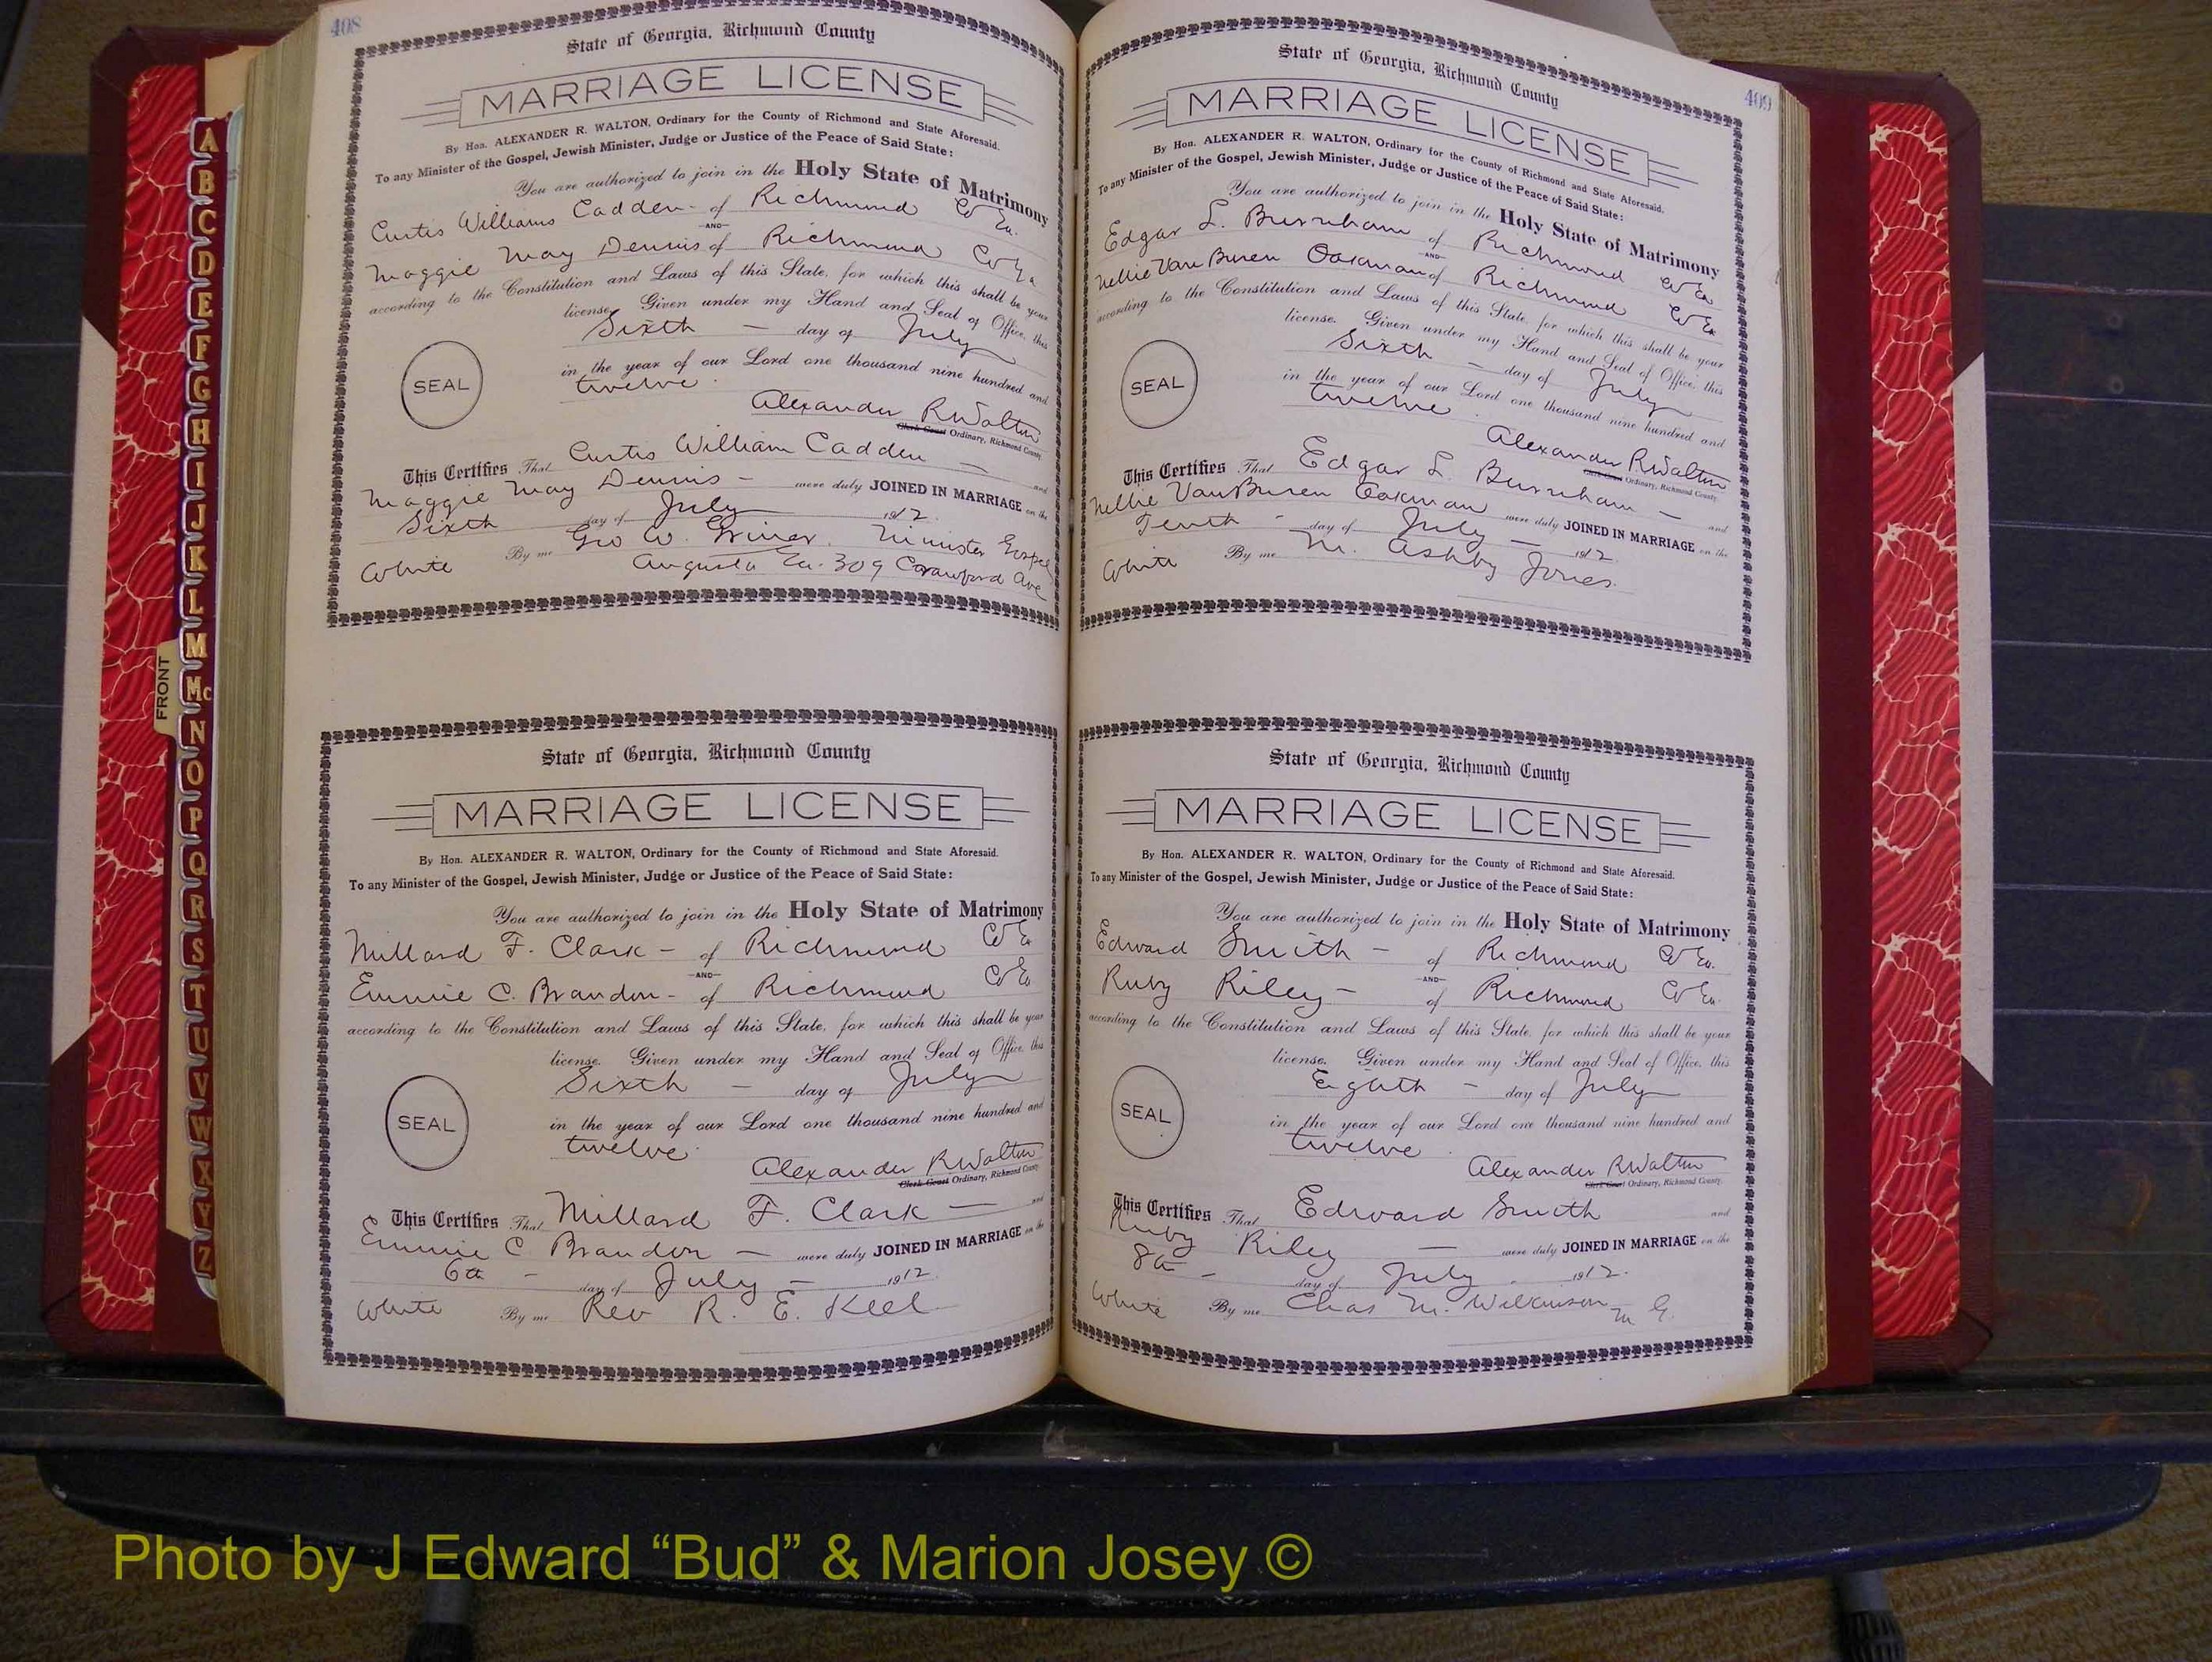 408
State of Georgia, Richmond County
MARRIAGE LICENSE
By Hon. ALEXANDER R. WALTON, Ordinary for the County of Richmond and State Aforesaid.
To any Minister of the Gospel, Jewish Minister, Judge or Justice of the Peace of Said State:
You are authorized to join in the Holy State of Matrimony
Curtis Williams Cadden - of Richmond Co Ga.
—AND—
Maggie May Dennis of Richmond Co Ga
according to the Constitution and Laws of this State, for which this shall be your
license. Given under my Hand and Seal of Office, this
Sixth — day of July
SEAL
in the year of our Lord one thousand nine hundred and
twelve.
Alexander R Walton
Clerk Court Ordinary, Richmond County
This Certifies That Curtis William Cadden — and
Maggie May Dennis - were duly JOINED IN MARRIAGE on the
Sixth day of July 1912.
White By me Geo W. Griner. Minister Gospel
Augusta Ga. 309 Crawford Ave
State of Georgia, Richmond County
MARRIAGE LICENSE
By Hon. ALEXANDER R. WALTON, Ordinary for the County of Richmond and State Aforesaid.
To any Minister of the Gospel, Jewish Minister, Judge or Justice of the Peace of Said State:
You are authorized to join in the Holy State of Matrimony
Millard F. Clark - of Richmond Co Ga
—AND—
Emmie C. Brandon - of Richmond Co Ga
according to the Constitution and Laws of this State, for which this shall be your
license. Given under my Hand and Seal of Office, this
Sixth — day of July
SEAL
in the year of our Lord one thousand nine hundred and
twelve.
Alexander R Walton
Clerk Court Ordinary, Richmond County
This Certifies That Millard F. Clark — and
Emmie C Brandon — were duly JOINED IN MARRIAGE on the
6th - day of July - 1912.
White By me Rev R. E. Keel
409
State of Georgia, Richmond County
MARRIAGE LICENSE
By Hon. ALEXANDER R. WALTON, Ordinary for the County of Richmond and State Aforesaid.
To any Minister of the Gospel, Jewish Minister, Judge or Justice of the Peace of Said State:
You are authorized to join in the Holy State of Matrimony
Edgar L. Burnham of Richmond Co Ga
—AND—
Nellie Van Buren Oakman of Richmond Co Ga
according to the Constitution and Laws of this State, for which this shall be your
license. Given under my Hand and Seal of Office, this
Sixth — day of July
SEAL
in the year of our Lord one thousand nine hundred and
twelve.
Alexander R Walton
Clerk Court Ordinary, Richmond County
This Certifies That Edgar L. Burnham — and
Nellie VanBuren Oakman were duly JOINED IN MARRIAGE on the
Tenth - day of July — 1912.
White By me M. Ashby Jones.
State of Georgia, Richmond County
MARRIAGE LICENSE
By Hon. ALEXANDER R. WALTON, Ordinary for the County of Richmond and State Aforesaid.
To any Minister of the Gospel, Jewish Minister, Judge or Justice of the Peace of Said State:
You are authorized to join in the Holy State of Matrimony
Edward Smith - of Richmond Co Ga.
—AND—
Ruby Riley - of Richmond Co Ga.
according to the Constitution and Laws of this State, for which this shall be your
license. Given under my Hand and Seal of Office, this
Eighth - day of July
SEAL
in the year of our Lord one thousand nine hundred and
twelve.
Alexander R Walton
Clerk Court Ordinary, Richmond County.
This Certifies That Edward Smith and
Ruby Riley — were duly JOINED IN MARRIAGE on the
8th - day of July. 1912.
White By me Chas M. Wilkinson M G.
FRONT
A
B
C
D
E
F
G
H
I
J
K
L
M
Mc
N
O
P
Q
R
S
T
U
V
W
X
Y
Z
Photo by J Edward “Bud” & Marion Josey ©